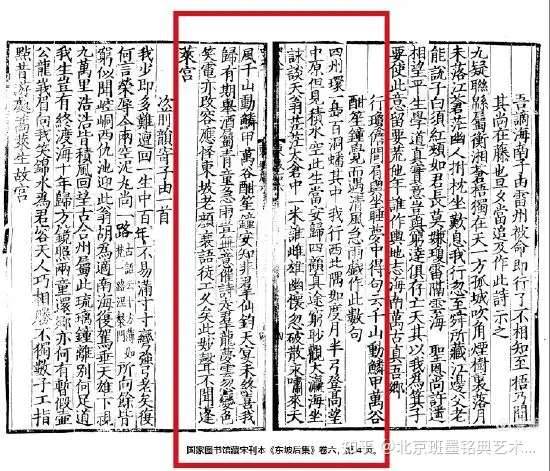 吾謫海南子由雷州被命即行了不相知至梧乃聞
其尚在藤也旦夕當追及作此詩示之
九疑聯緜屬衡湘蒼梧獨在天一方孤城吹角煙樹裏落月
未落江蒼茫幽人拊枕坐歎息我行忽至舜所藏江邊父老
能說子白須紅頰如君長莫嫌瓊雷隔雲海聖恩尚許遙
相望平生學道真實意豈與窮達俱存亡天其以我為箕子
要使此意留要荒他年誰作輿地志海南萬古真吾鄉
行瓊儋間肩輿坐睡夢中得句云千山動鱗甲萬谷
酣笙鐘覺而遇清風急雨戲作此數句
四州環一島百洞蟠其中我行西北隅如度月半弓登高望
中原但見積水空此生當安歸四顧真途窮眇觀大瀛海坐
詠談天翁茫茫太倉中一米誰雌雄幽懷忽破散永嘯來天
風千山動鱗甲萬谷酣笙鐘安知非羣仙鈞天宴未終喜我
歸有期舉酒屬青童急雨豈無意催詩走羣龍夢雲忽變色
笑電亦改容應怪東坡老顏衰語徒工久矣此妙聲不聞蓬
萊宮
次前韻寄子由一首
我少即多難邅回一生中百年不易滿寸寸彎強弓老矣復
何言榮辱今兩空泥丸尚一路古語云十方薄伽梵一路涅槃門所向餘皆
窮似聞崆峒西仇池迎此翁胡為適南海復駕垂天雄下視
九萬里浩浩皆積風回望古合州屬此琉璃鍾離別何足道
我生豈有終渡海十年歸方鏡照兩童還鄉亦何有暫假壺
公龍峨眉向我笑錦水為君容天人巧相勝不獨數子工指
點昔游處蒿萊生故宮
国家图书馆藏宋刊本《东坡后集》卷六，第4页。
知乎 @北京班墨铭典艺术...